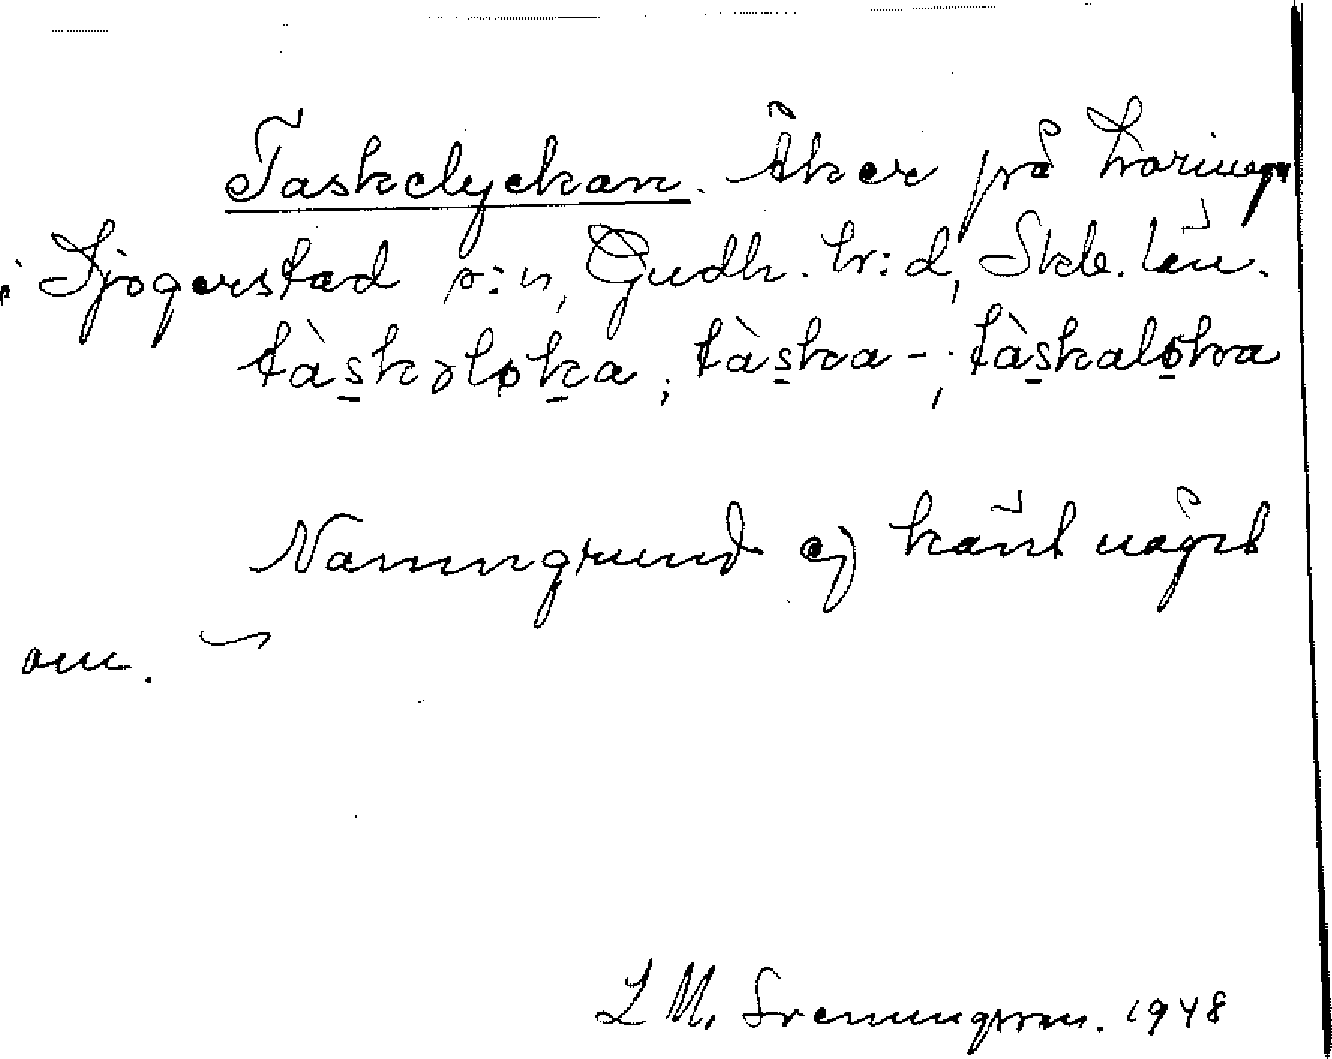 Taskelyckan. Åker på
i Sjogerstad s:n, Gudh. hr:d, Skb. län.
tàskəloka; tàska-; tàskaloka
Namngrund ej känt något
om.
L M. Svenungsson. 1948